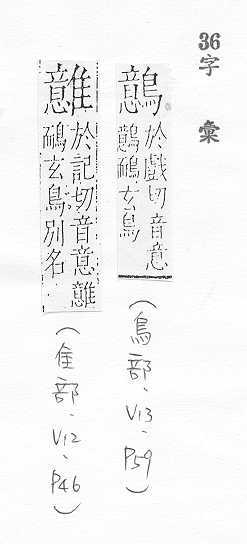 36 字彙
鷾
於戲切音意
鷾鴯玄鳥
(鳥部、V13、P59)
於記切音意
鴯玄鳥別名
(隹部、V12、P46)